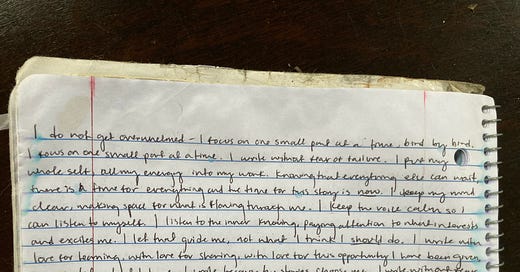 I do not get overwhelmed - I focus on one small part at a time, bird by bird.
I focus on one small part at a time. I write without fear or failure. I put my
whole self, all my energy into my work. Knowing that everything else can wait,
there is a time for everything and the time for this story is now. I keep my mind
clear, making space for what is flowing through me. I keep the voice calm so I
can listen to myself. I listen to the inner knowing, paying attention to what interests
and excites me. I let that guide me, not what I think I should do. I write with
love for learning, with love for sharing, with love for this opportunity I have been given